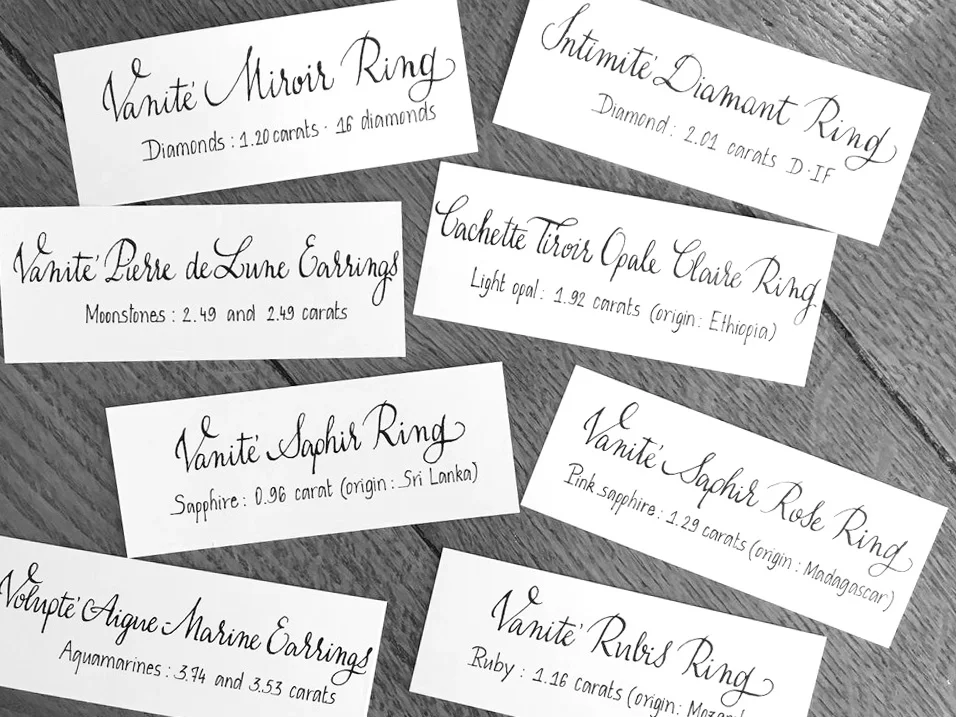 Vanité Miroir Ring
Diamonds : 1.20 carats · 16 diamonds
Intimité Diamant Ring
Diamond : 2.01 carats D·IF
Vanité Pierre de Lune Earrings
Moonstones : 2.49 and 2.49 carats
Cachette Tiroir Opale Claire Ring
Light opal : 1.92 carats (origin : Ethiopia)
Vanité Saphir Ring
Sapphire : 0.96 carat (origin : Sri Lanka)
Vanité Saphir Rose Ring
Pink sapphire : 1.29 carats (origin : Madagascar)
Volupté Aigue-Marine Earrings
Aquamarines : 3.74 and 3.53 carats
Vanité Rubis Ring
Ruby : 1.16 carats (origin :